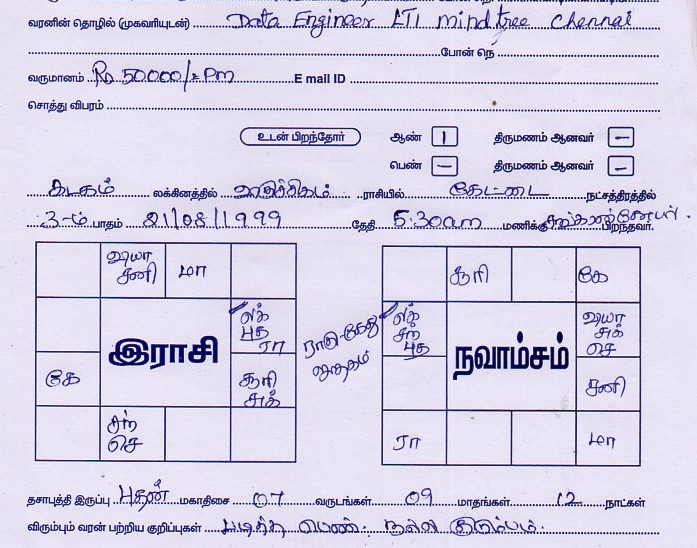 வரனின் தொழில் (முகவரியுடன்) Data Engineer LTI mindtree Chennai
போன் நெ
வருமானம் Rs 50000/= Pm E mail ID
சொத்து விபரம்
உடன் பிறந்தோர் ஆண் 1 திருமணம் ஆனவர் –
பெண் – திருமணம் ஆனவர் –
கடகம் லக்கினத்தில் விருச்சிகம் ராசியில் கேட்டை நட்சத்திரத்தில்
3-ம் பாதம் 21/08/1999 தேதி 5.30am மணிக்கு பிறந்தவர்.
வியா சனி மா
லக் புத ரா
இராசி
கே சூரி சுக்
சந் செ
ராகு-கேது ஜாதகம்
சூரி கே
லக் சந் புத வியா சுக் செ
நவாம்சம்
சனி
ரா மா
தசாபுத்தி இருப்பு புதன் மகாதிசை 07 வருடங்கள் 09 மாதங்கள் 12 நாட்கள்
விரும்பும் வரன் பற்றிய குறிப்புகள் படித்த பெண். நல்ல குடும்பம்.